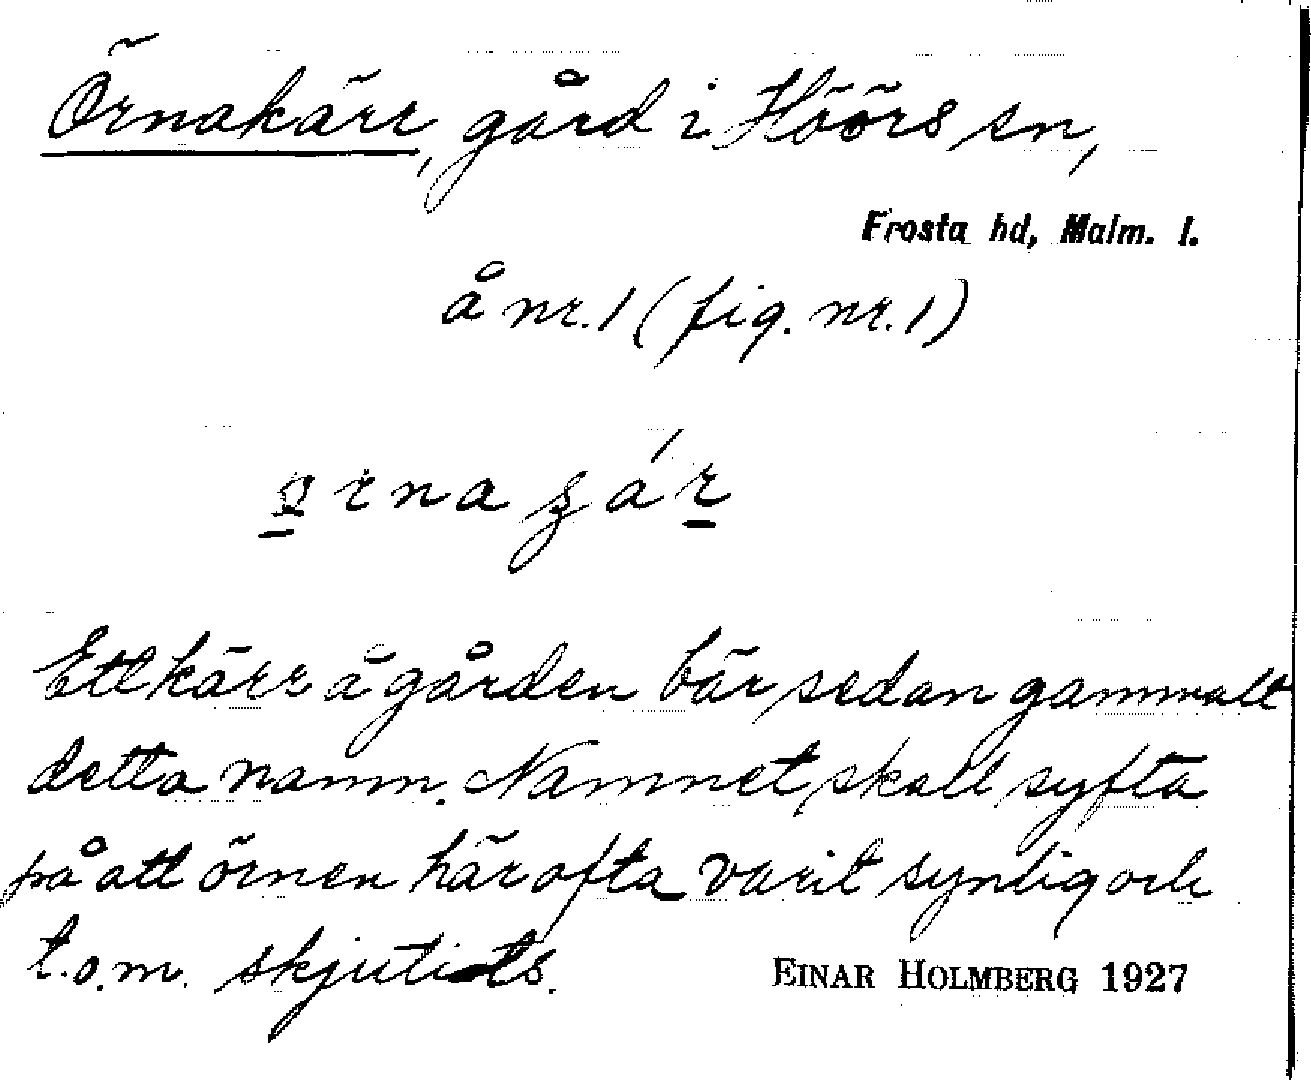 Örnakärr, gård i Höörs sn,
Frosta hd, Malm. l.
å nr. 1 (fig. nr. 1)
Ett kärr å gården bär sedan gammalt
detta namn. Namnet skall syfta
på att örnen här ofta varit synlig och
t.o.m. skjutits.
EINAR HOLMBERG 1927